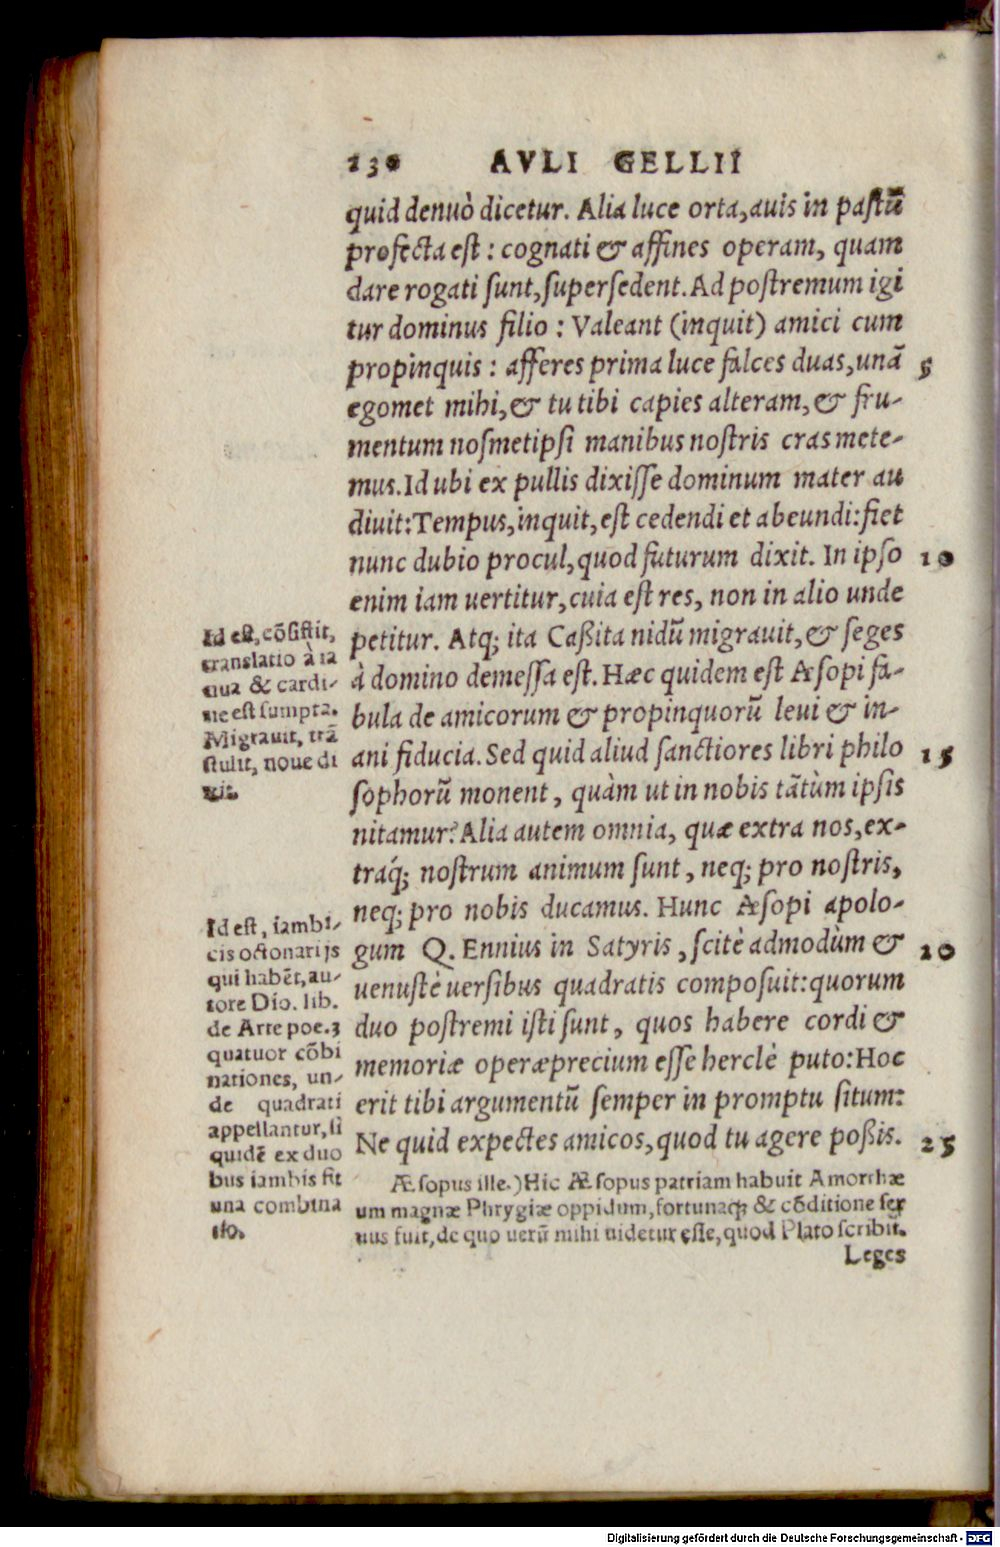 130 AVLI GELLII
quid denuò dicetur. Alia luce orta, auis in pastũ
profecta est: cognati & affines operam, quam
dare rogati sunt, supersedent. Ad postremum igi
tur dominus filio: Valeant (inquit) amici cum
propinquis: afferes prima luce falces duas, unã 5
egomet mihi, & tu tibi capies alteram, & fru-
mentum nosmetipsi manibus nostris cras mete-
mus. Id ubi ex pullis dixisse dominum mater au
diuit: Tempus, inquit, est cedendi et abeundi: fiet
nunc dubio procul, quod futurum dixit. In ipso 10
enim iam uertitur, cuia est res, non in alio unde
petitur. Atq; ita Caßita nidũ migrauit, & seges
à domino demessa est. Hæc quidem est Æsopi fa-
bula de amicorum & propinquorũ leui & in-
ani fiducia. Sed quid aliud sanctiores libri philo 15
sophorũ monent, quàm ut in nobis tãtùm ipsis
nitamur? Alia autem omnia, quæ extra nos, ex-
traq́; nostrum animum sunt, neq; pro nostris,
neq; pro nobis ducamus. Hunc Æsopi apolo-
gum Q. Ennius in Satyris, scitè admodùm & 20
uenustè uersibus quadratis composuit: quorum
duo postremi isti sunt, quos habere cordi &
memoriæ operæprecium esse herclè puto: Hoc
erit tibi argumentũ semper in promptu situm:
Ne quid expectes amicos, quod tu agere poßis. 25
Id est, cõsistit,
translatio à ia
nua & cardi-
ne est sumpta.
Migrauit, trã
stulit, noue di
xit.
Id est, iambi-
cis octonarijs
qui habẽt, au-
tore Dio. lib.
de Arte poe. 3
quatuor cõbi
nationes, un-
de quadrati
appellantur, si
quidẽ ex duo
bus iambis fit
una combina
tio.
Æsopus ille.) Hic Æsopus patriam habuit Amorrhæ
um magnæ Phrygiæ oppidum, fortunaq; & cõditione ser
uus fuit, de quo uerũ mihi uidetur esse, quod Plato scribit.
Leges
Digitalisierung gefördert durch die Deutsche Forschungsgemeinschaft - DFG